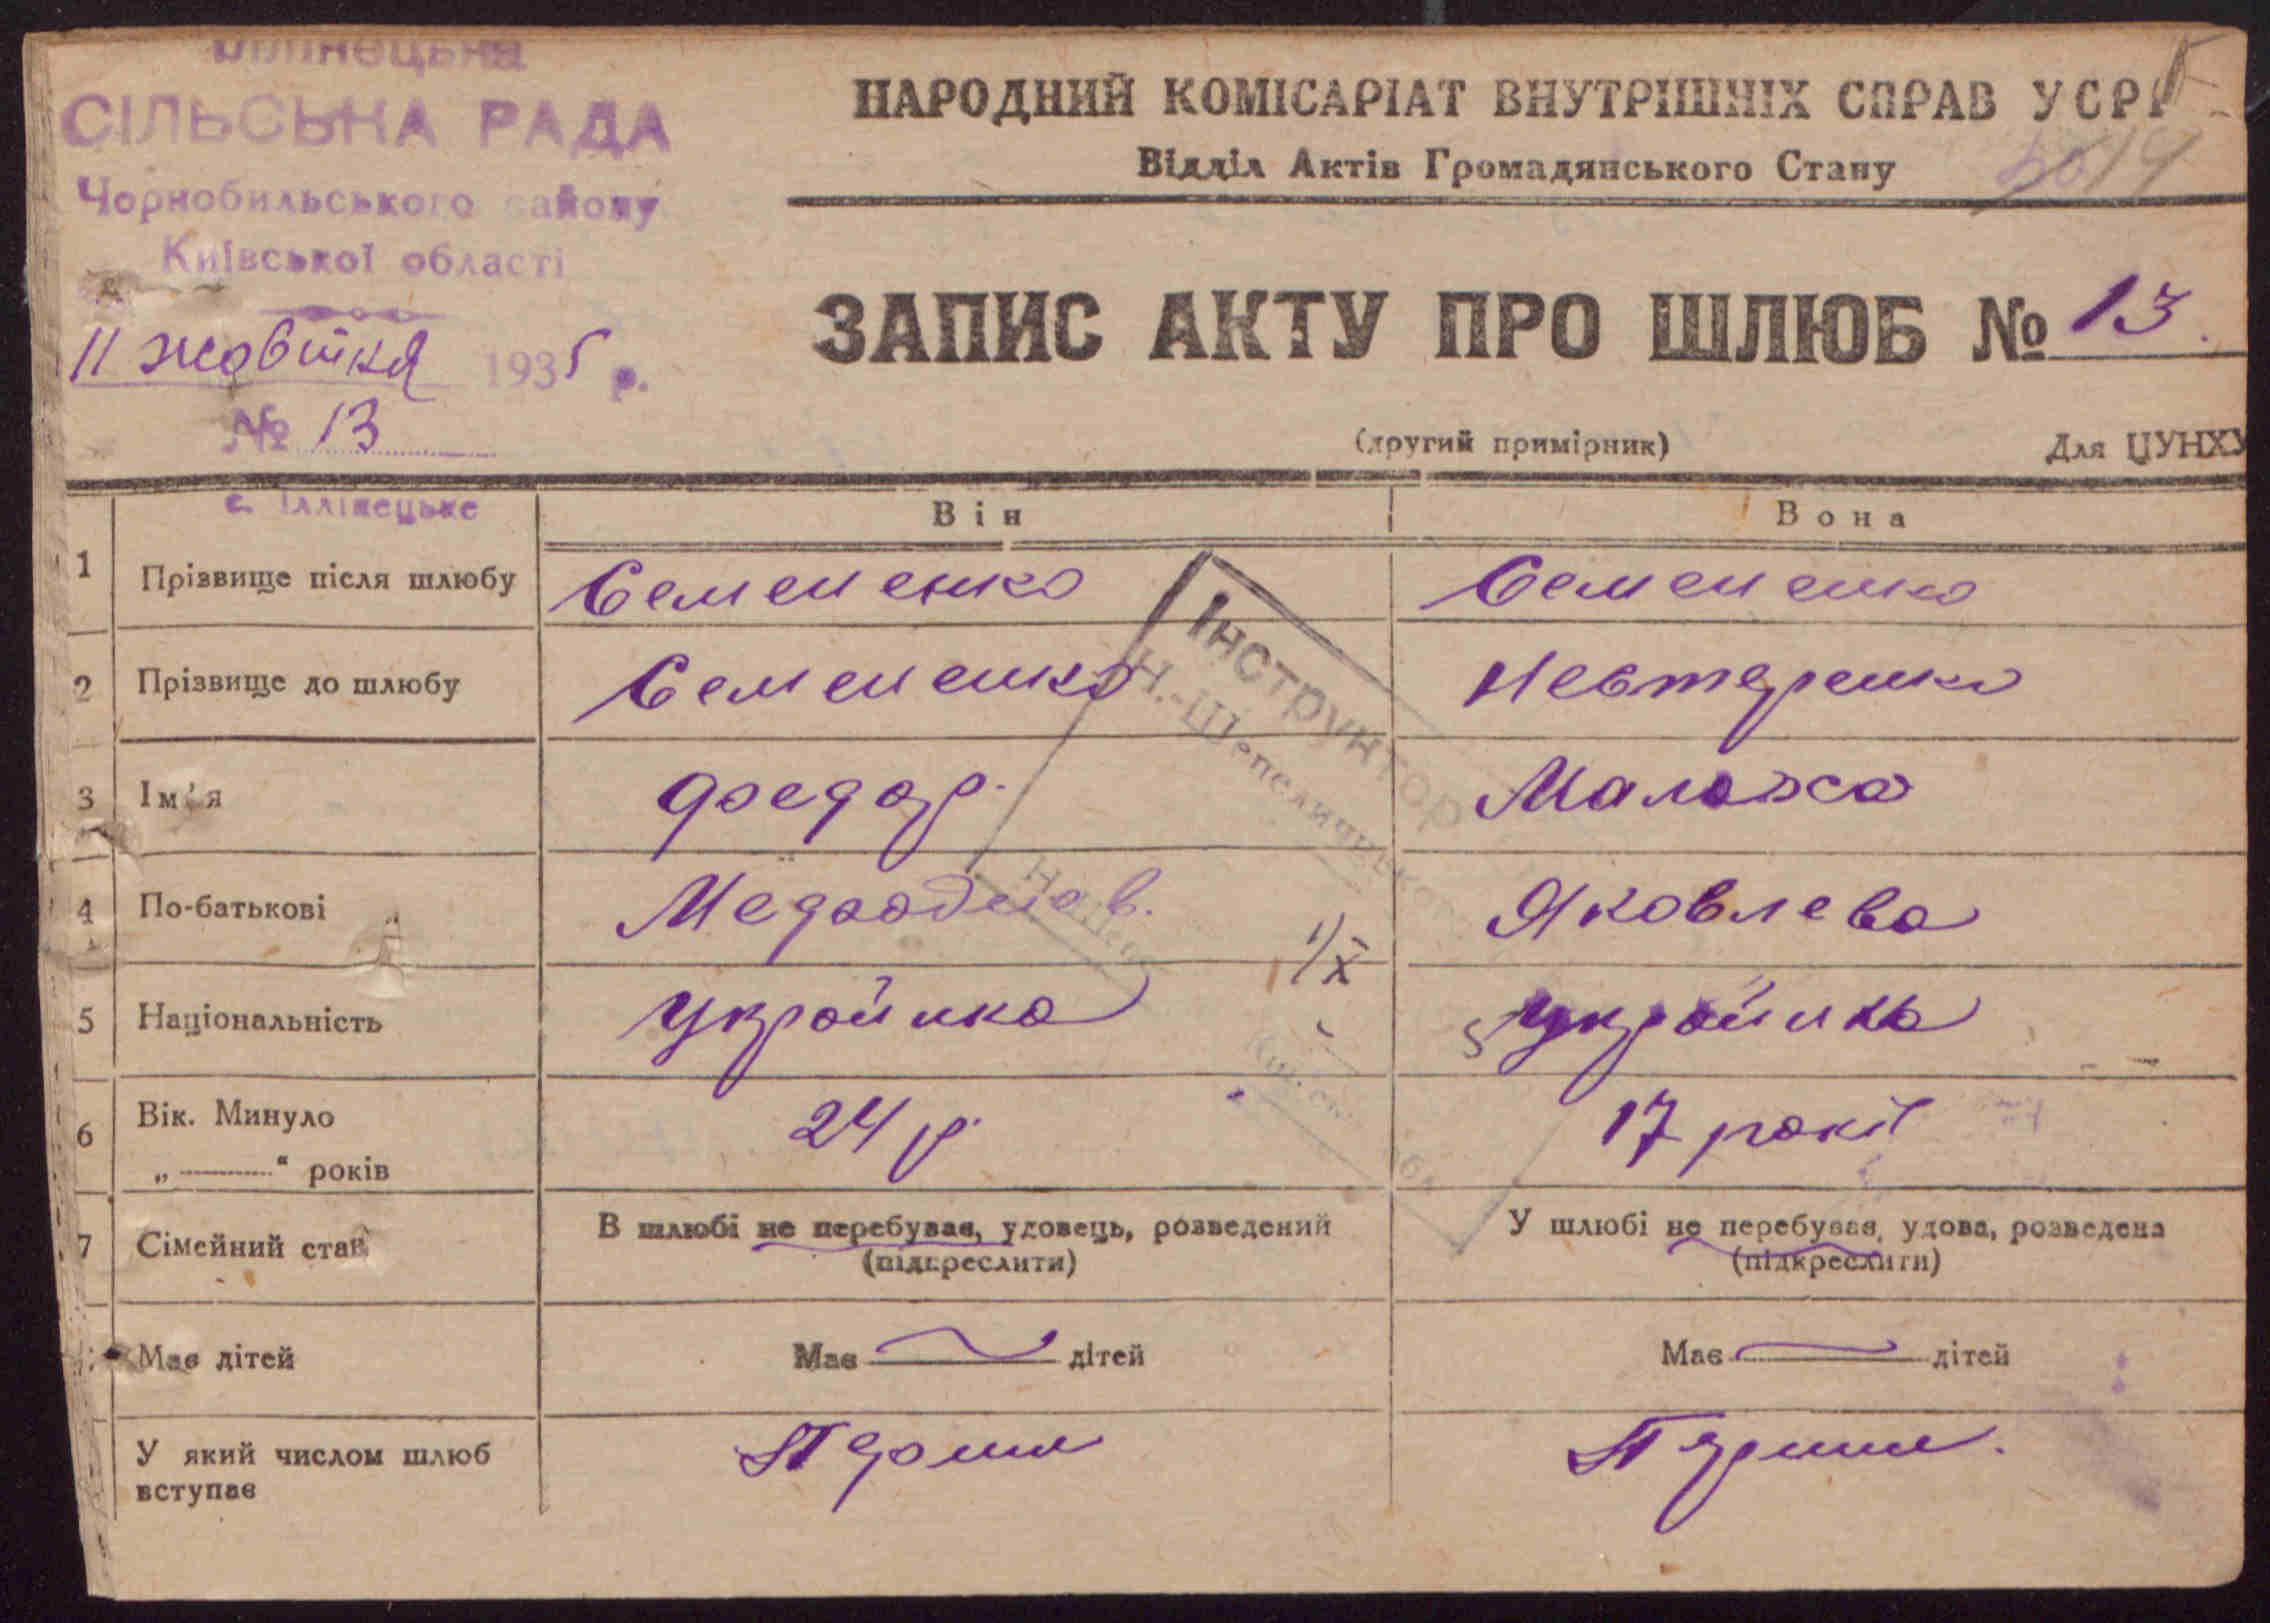 СІЛЬСЬКА РАДА
Чорнобильського району
Київської області
11 жовтня 1935 р.
№ 13
с. Іллінецьке
НАРОДНИЙ КОМІСАРІАТ ВНУТРІШНІХ СПРАВ УСРР
Відділ Актів Громадянського Стану
ЗАПИС АКТУ ПРО ШЛЮБ № 13.
(другий примірник) Для ЦУНХУ
Він Вона
1 Прізвище після шлюбу Семененко Семененко
2 Прізвище до шлюбу Семененко Невмержи
3 Ім'я Федор. Маложа
4 По-батькові Яковлева
5 Національність Україика Україика
6 Вік. Минуло 24 р. 17 років
„ “ років
7 Сімейний стан В шлюбі не перебував, удовець, розведений У шлюбі не перебував, удова, розведена
(підкреслити) (підкреслити)
Має дітей Має дітей Має дітей
У який числом шлюб
вступає
Інструктор
Н.-Шепелицького
1/X